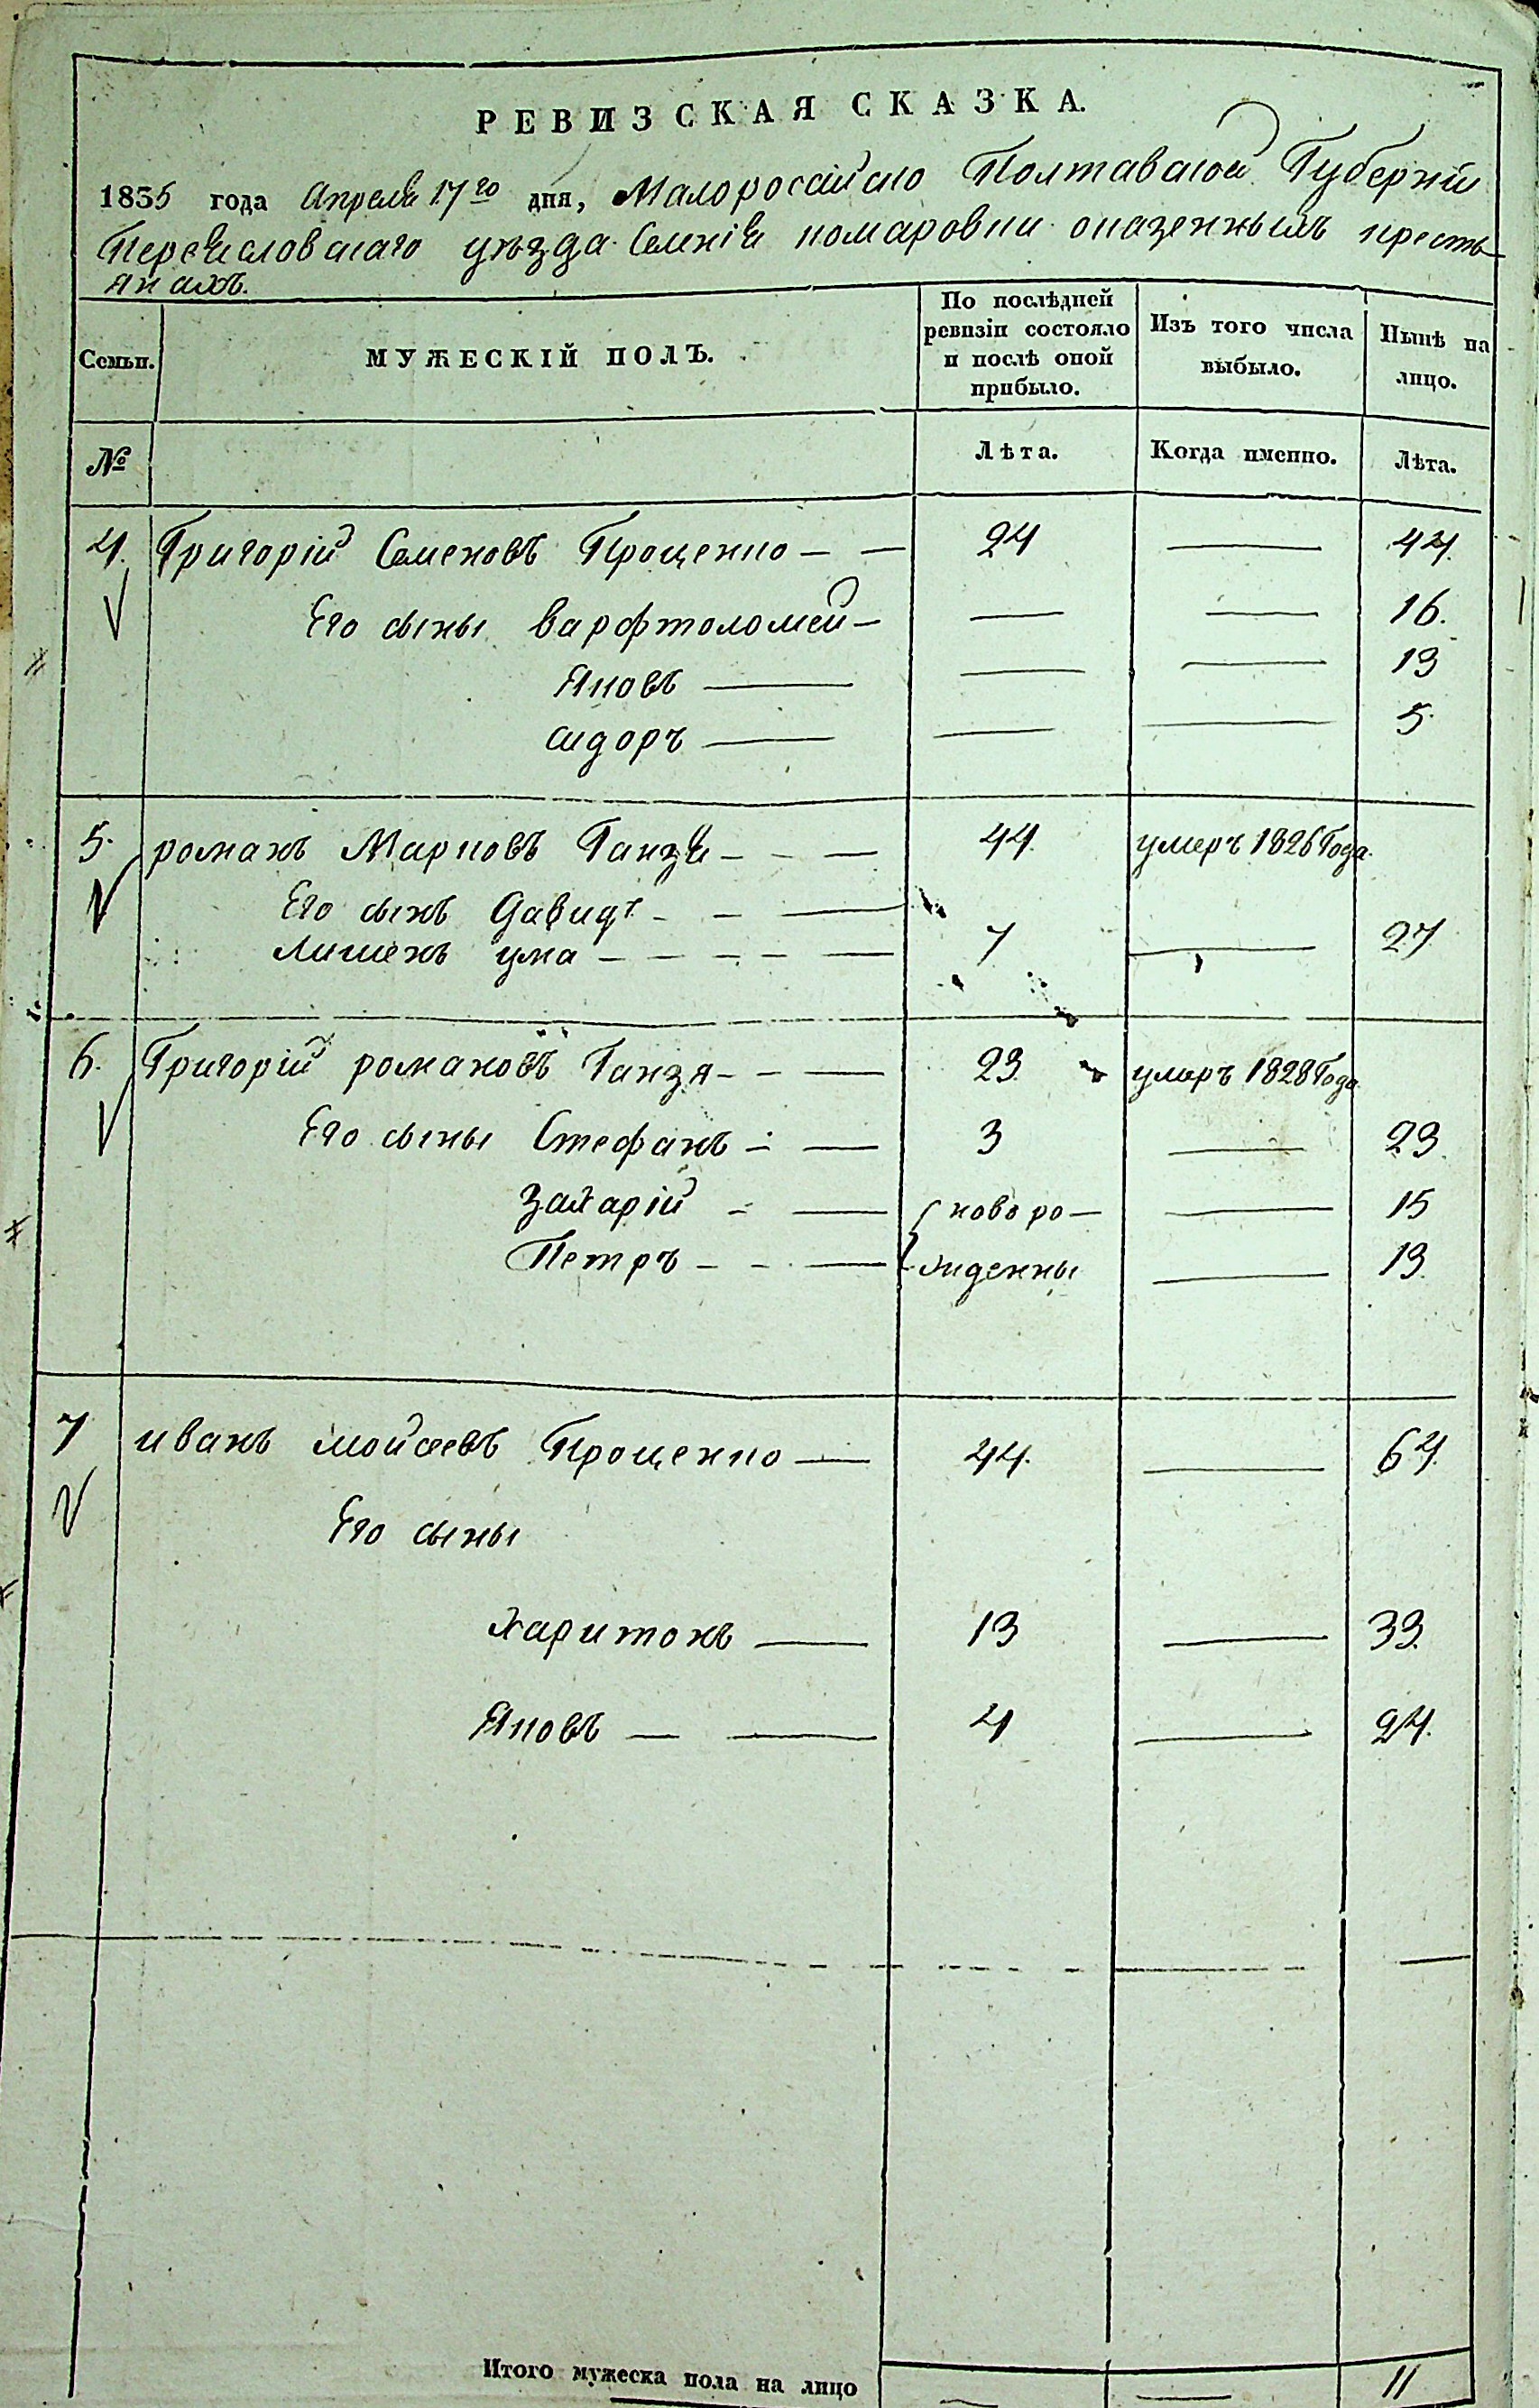 РЕВИЗСКАЯ СКАЗКА.
1835 года Апреля 17го дня, Малоросcійско Полтавской Губерніи
Переяславскаго уѣзда Селенія комаровки оказенныхъ кресть
янахъ.
Семьи.
МУЖЕСКІЙ ПОЛЪ.
По послѣдней
ревизіи состояло
и послѣ оной
прибыло.
Изъ того числа
выбыло.
Нынѣ на
лицо.
№
Лѣта.
Когда именно.
Лѣта.
4. Григорій Семеновъ Проценко — — 24 — 44.
Его сыны варфтоломей — — — 16.
Яковъ — — — 13
сидоръ — — — 5.
5. романъ Марковъ Ганзя — — — 44. умеръ 1826 Года.
Его сынъ Давидъ — — —
лишенъ ума — — — — — 7 — 27
6. Григорій романовъ Ганзя — — — 23. умеръ 1828 Года
Его сыны Стефанъ — — 3 — 23.
Захарій — — ново ро — — 15
Петръ — — — жденны — 13.
7 иванъ мойсеевъ Проценко — 44. — 64.
Его сыны
Харитонъ — 13 — 33.
Яковъ — — 4 — 24.
Итого мужеска пола на лицо — — 11